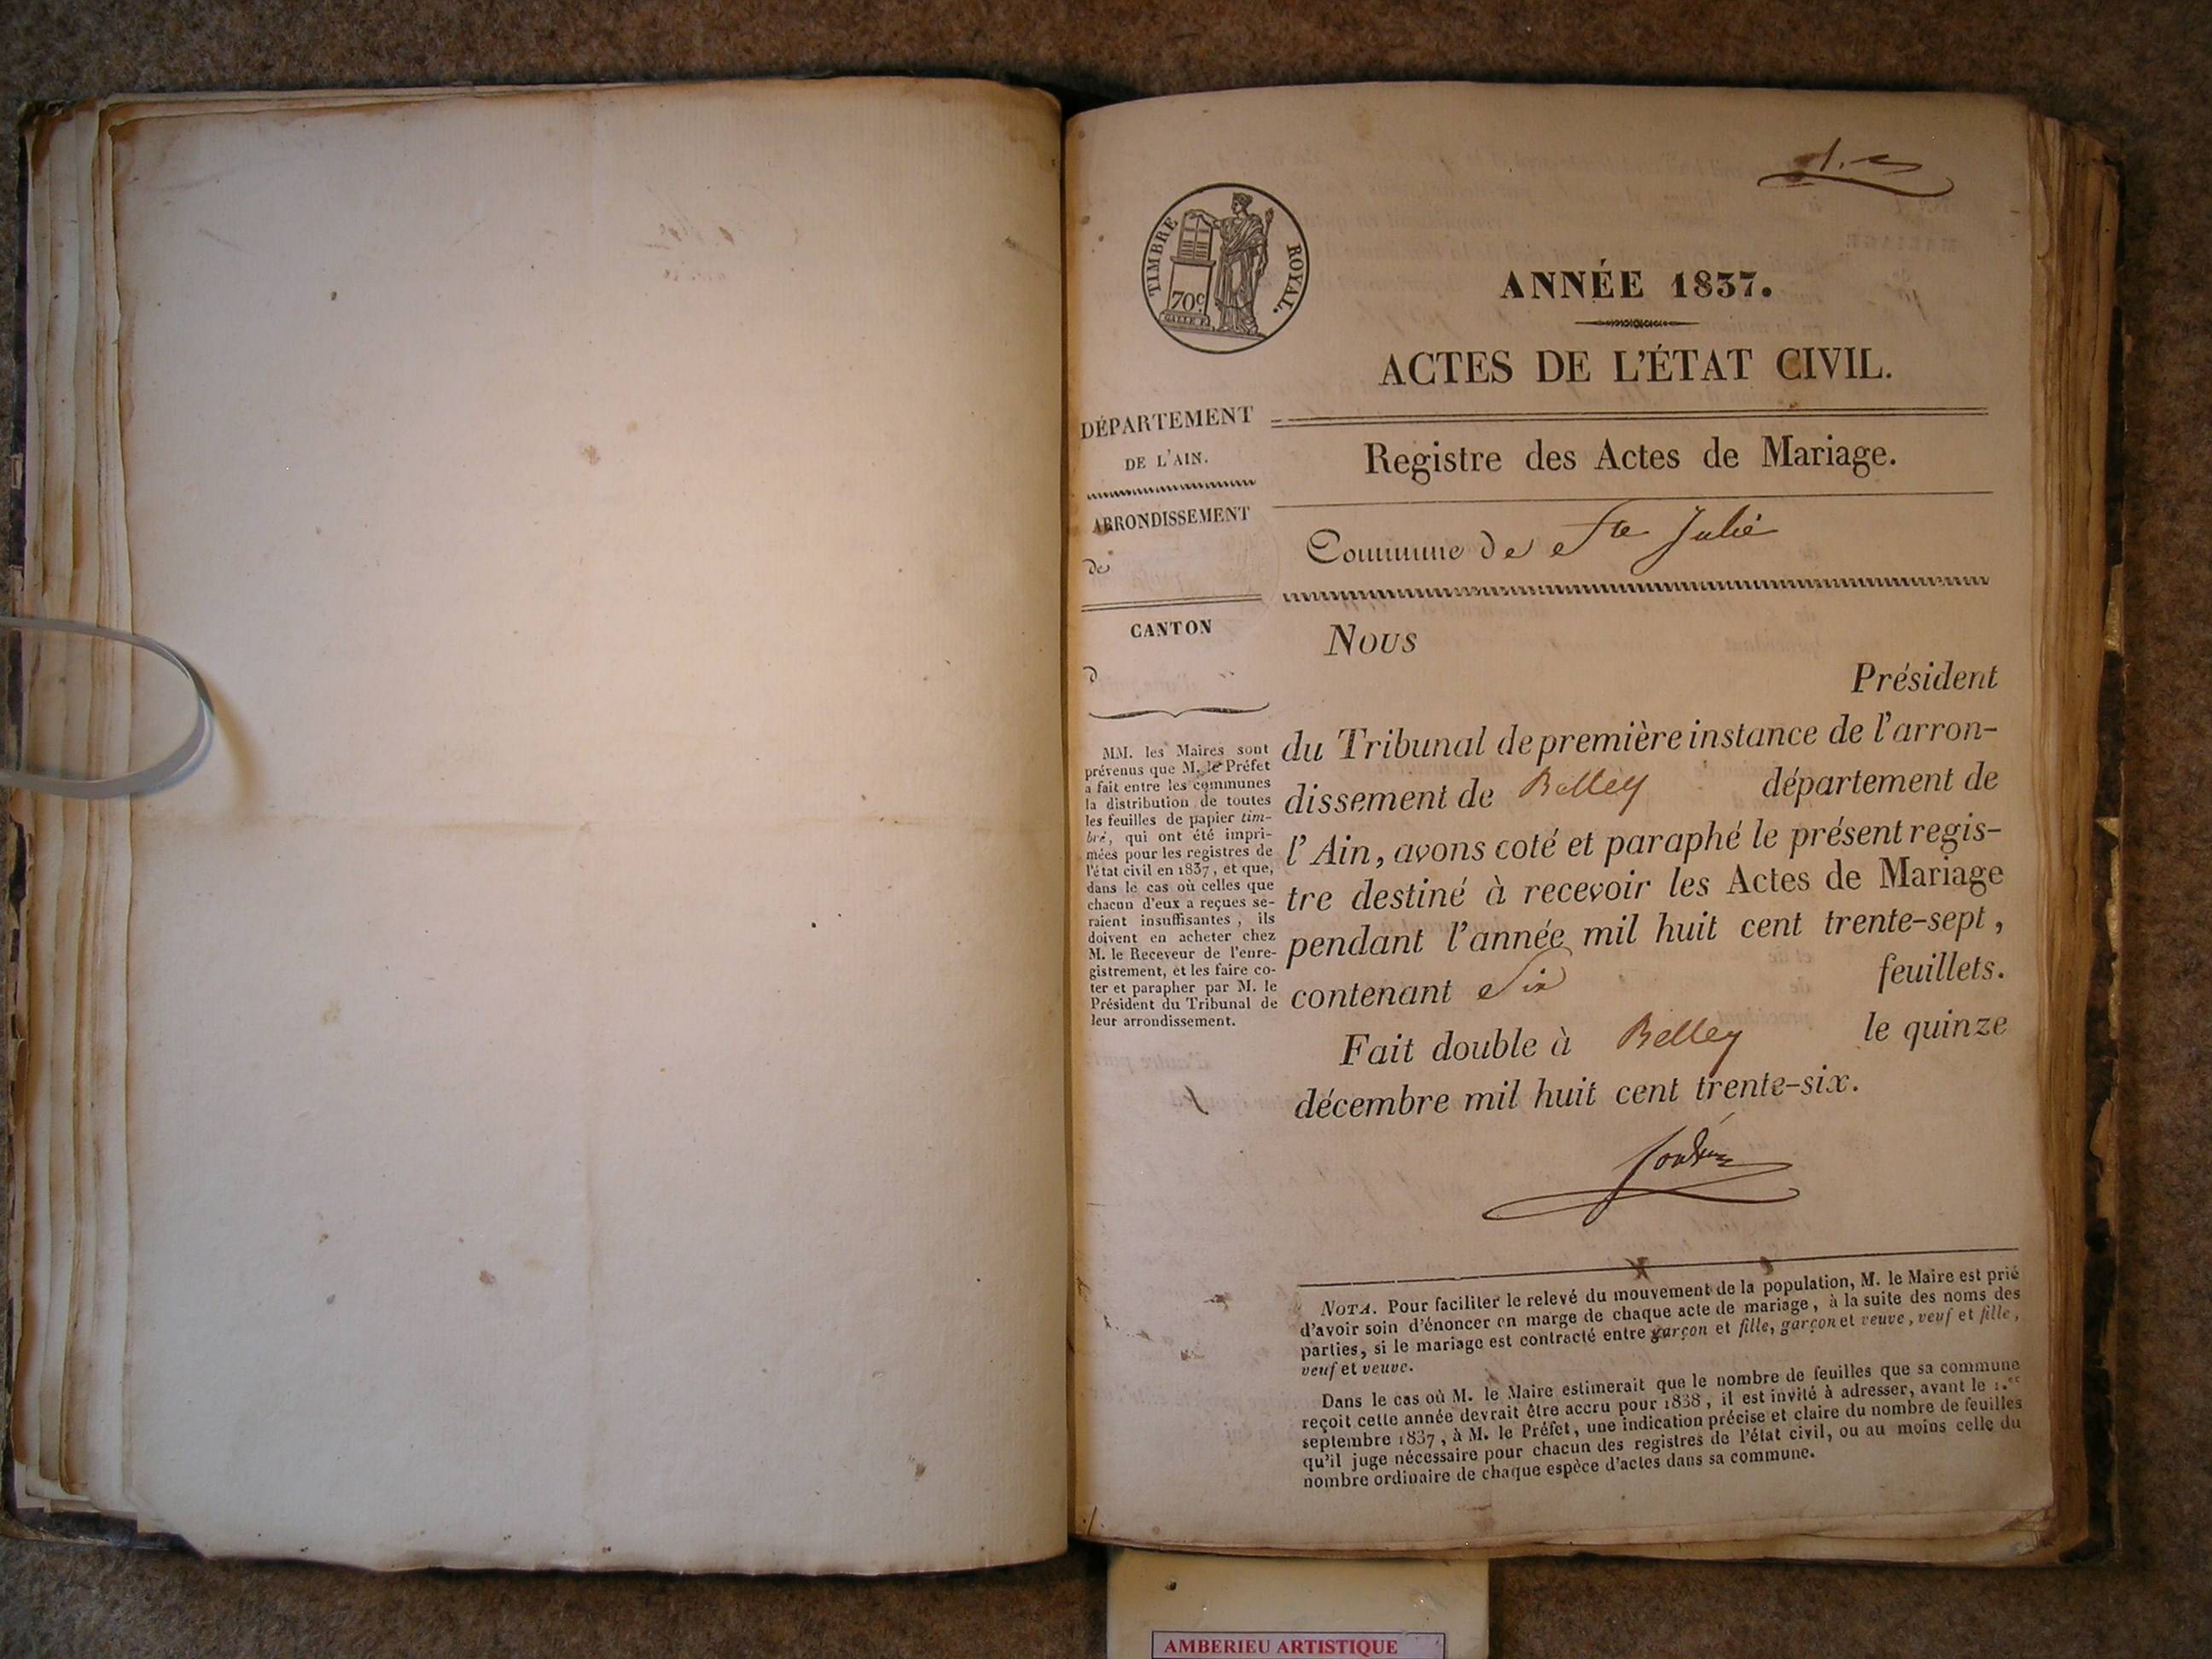 TIMBRE ROYAL.
70c.
GALLE F.
ANNÉE 1837.
ACTES DE L'ÉTAT CIVIL.
DÉPARTEMENT
DE L'AIN.
ARRONDISSEMENT
de
CANTON
d
MM. les Maires sont
prévenus que M. le Préfet
a fait entre les communes
la distribution de toutes
les feuilles de papier tim-
bré, qui ont été impri-
mées pour les registres de
l'état civil en 1837, et que,
dans le cas où celles que
chacun d'eux a reçues se-
raient insuffisantes, ils
doivent en acheter chez
M. le Receveur de l'enre-
gistrement, et les faire co-
ter et parapher par M. le
Président du Tribunal de
leur arrondissement.
Registre des Actes de Mariage.
Commune de Ste Julie
Nous
Président
du Tribunal de première instance de l'arron-
dissement de Belley département de
l'Ain, avons coté et paraphé le présent regis-
tre destiné à recevoir les Actes de Mariage
pendant l'année mil huit cent trente-sept,
contenant Six feuillets.
Fait double à Belley le quinze
décembre mil huit cent trente-six.
NOTA. Pour faciliter le relevé du mouvement de la population, M. le Maire est prié
d'avoir soin d'énoncer en marge de chaque acte de mariage, à la suite des noms des
parties, si le mariage est contracté entre garçon et fille, garçon et veuve, veuf et fille,
veuf et veuve.
Dans le cas où M. le Maire estimerait que le nombre de feuilles que sa commune
reçoit cette année devrait être accru pour 1838, il est invité à adresser, avant le 1.er
septembre 1837, à M. le Préfet, une indication précise et claire du nombre de feuilles
qu'il juge nécessaire pour chacun des registres de l'état civil, ou au moins celle du
nombre ordinaire de chaque espèce d'actes dans sa commune.
AMBERIEU ARTISTIQUE